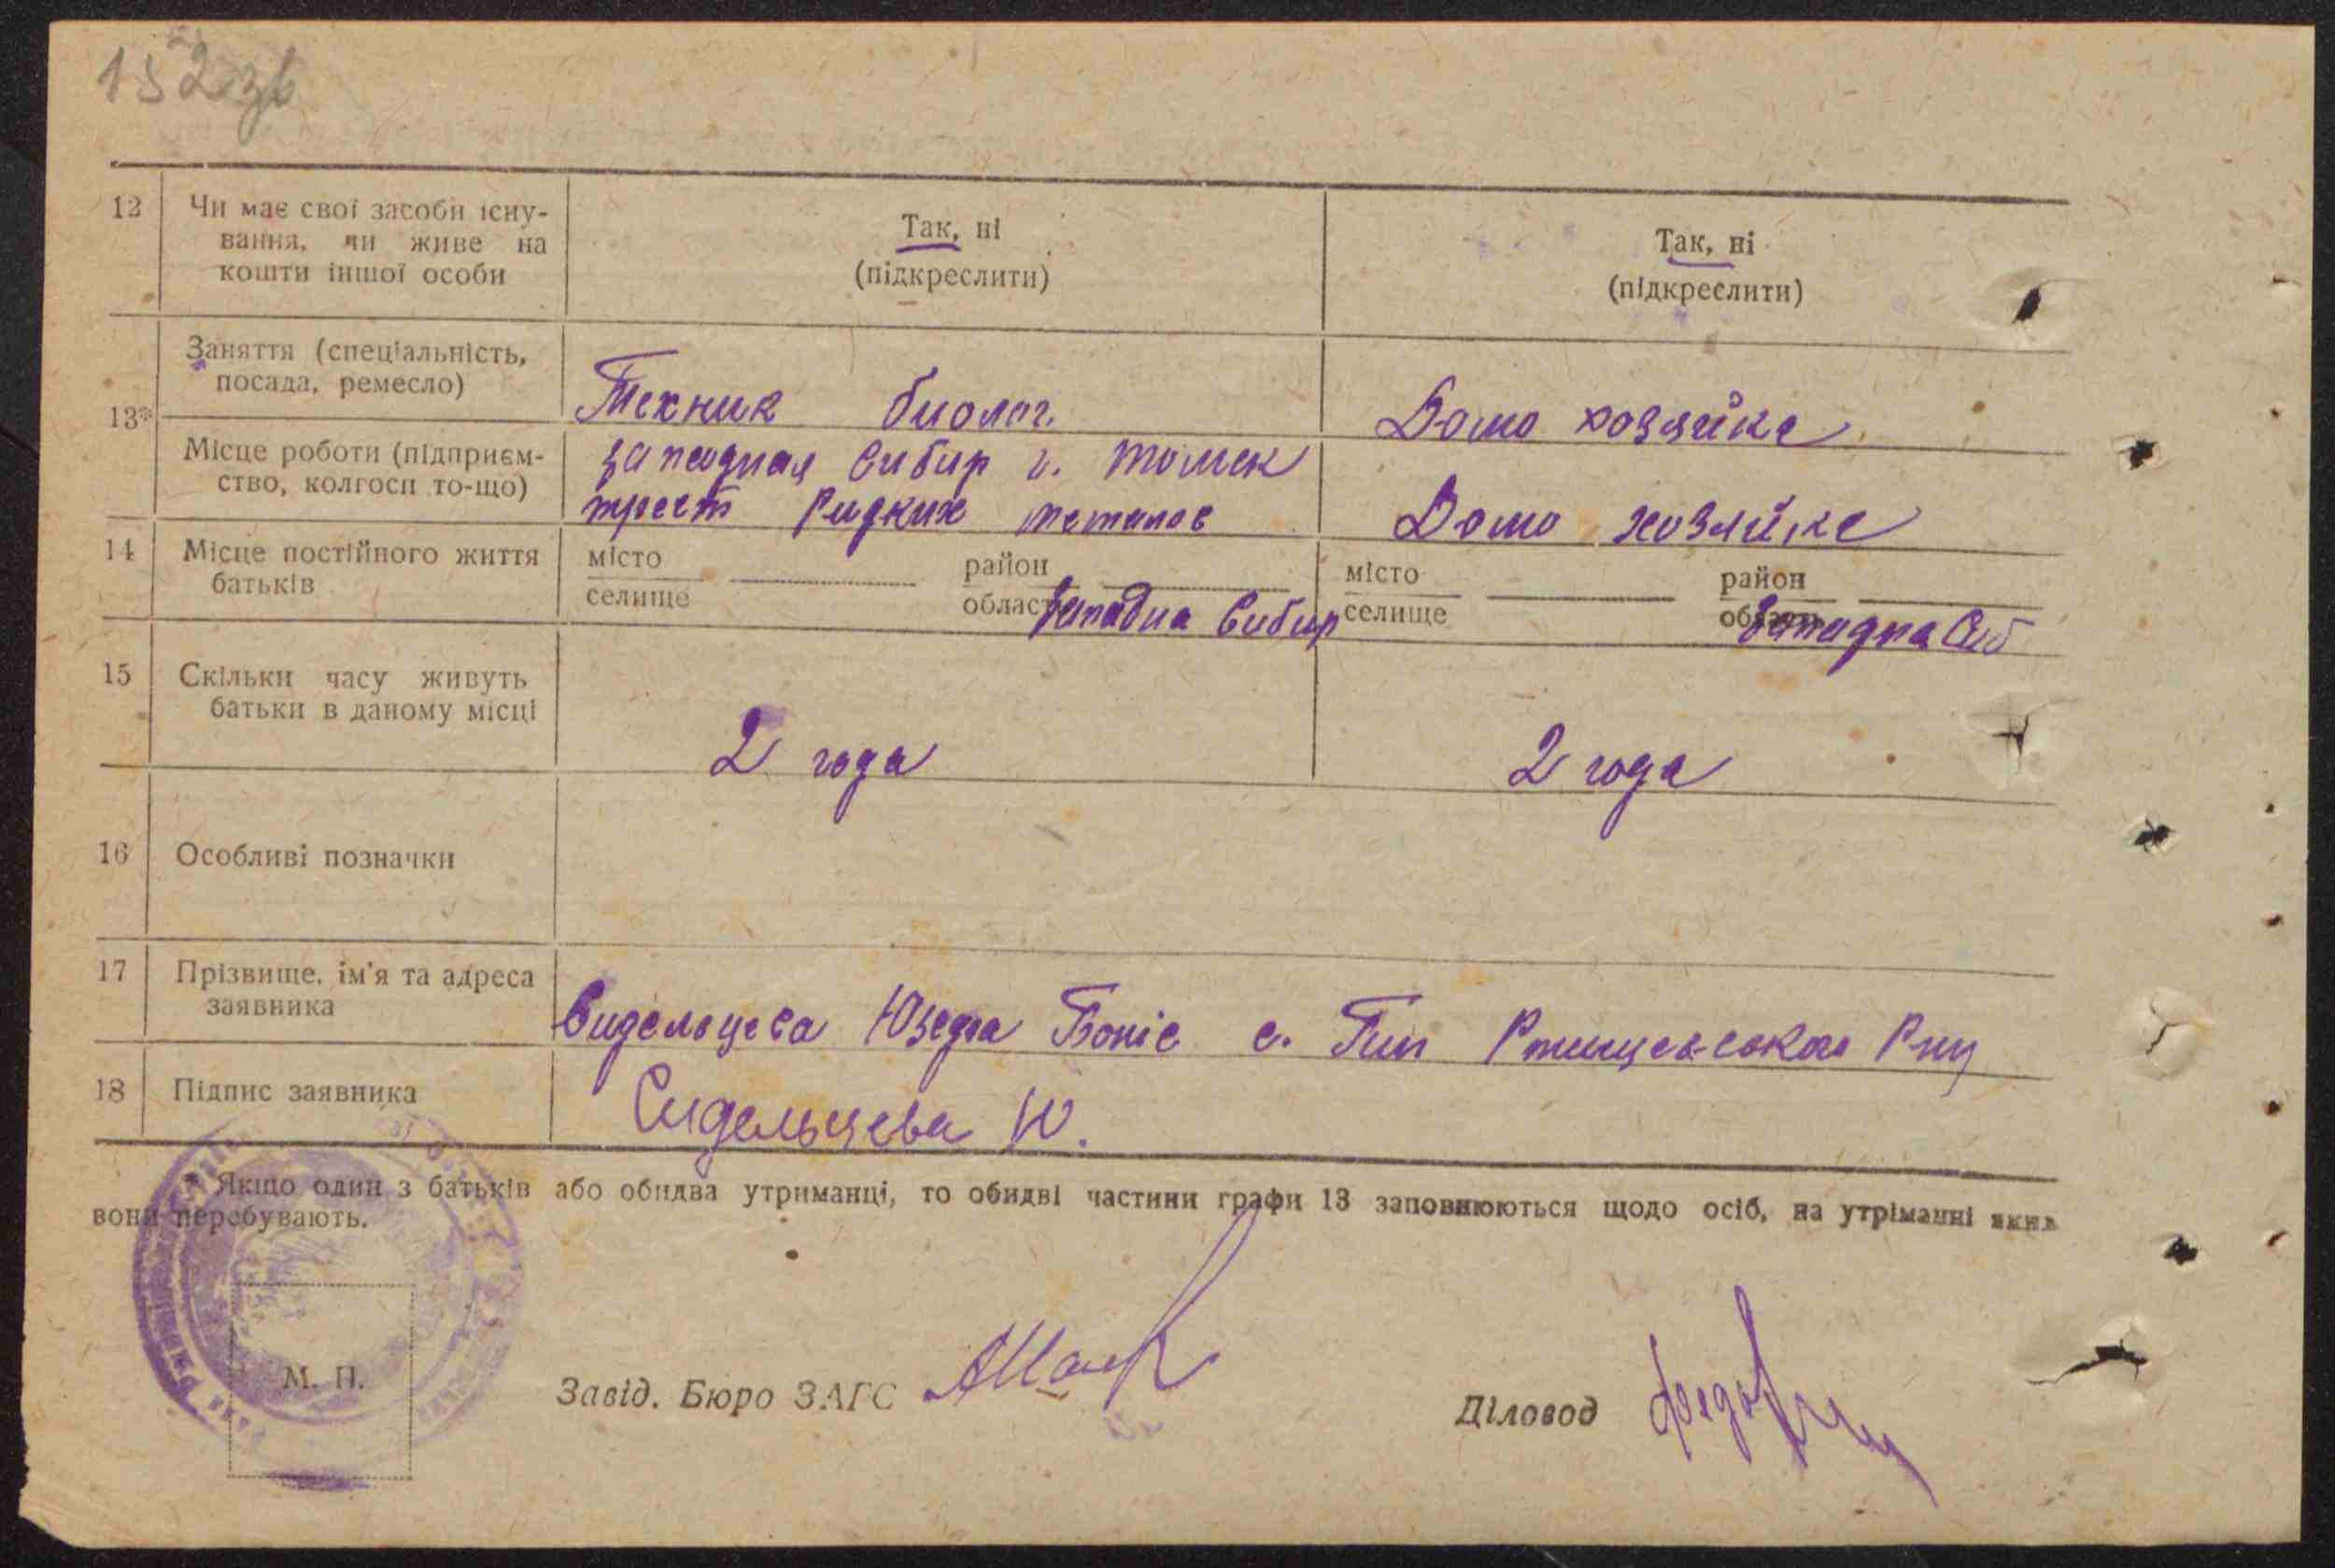 152 зв
12 Чи має свої засоби існу-
вання, чи живе на
кошти іншої особи
Так, ні
(підкреслити)
Так, ні
(підкреслити)
13*
Заняття (спеціальність,
посада, ремесло)
Техник биолог.
Домо хозяйка
Місце роботи (підприєм-
ство, колгосп то-що)
западная Сибир г. Томск
трест Ридких металов
Домо хозяйка
14 Місце постійного життя
батьків
місто
селище
район
область Западна Сибир
місто
селище
район
область Западна Сиб
15 Скільки часу живуть
батьки в даному місці
2 года
2 года
16 Особливі позначки
17 Прізвище, ім'я та адреса
заявника
Сидельцева с.
18 Підпис заявника
Сидельцева Ю.
* Якщо один з батьків або обидва утриманці, то обидві частини графи 13 заповнюються щодо осіб, на утріманні яких
вони перебувають.
М. П.
Завід. Бюро ЗАГС
Діловод